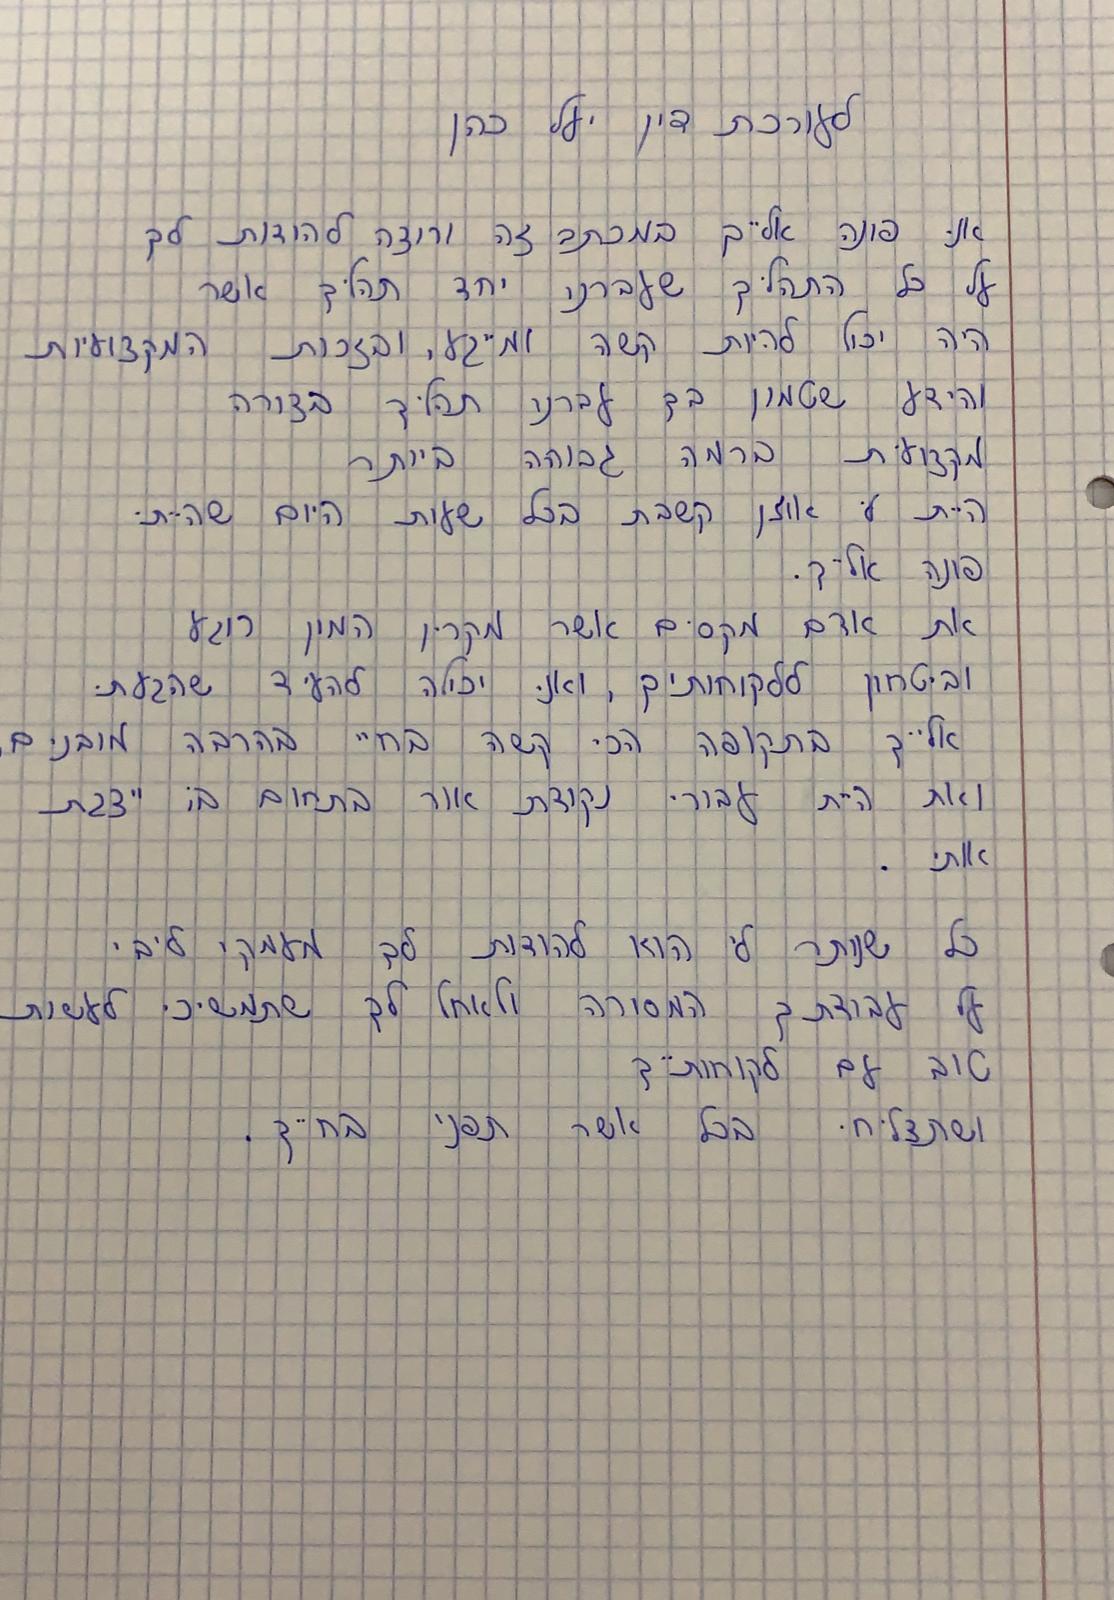 לעורכת דין יעל כהן
אני פונה אלייך במכתב זה ורוצה להודות לך
על כל התהליך שעברנו יחד תהליך אשר
היה יכול להיות קשה ומייגע, ובזכות המקצועיות
והידע שטמון בך עברנו תהליך בצורה
מקצועית ברמה גבוהה ביותר
היית לי אוזן קשבת בכל שעות היום שהייתי
פונה אלייך.
את אדם מקסים אשר מקרין המון רוגע
וביטחון ללקוחותיך, ואני יכולה להעיד שהגעתי
אלייך בתקופה הכי קשה בחיי בהרבה מובנים,
ואת היית עבורי נקודת אור בתחום בו ייצגת
אותי .
כל שנותר לי הוא להודות לך מעמקי ליבי
על עבודתך המסורה ולאחל לך שתמשיכי לעשות
טוב עם לקוחותייך
ושתצליחי בכל אשר תפני בחייך.